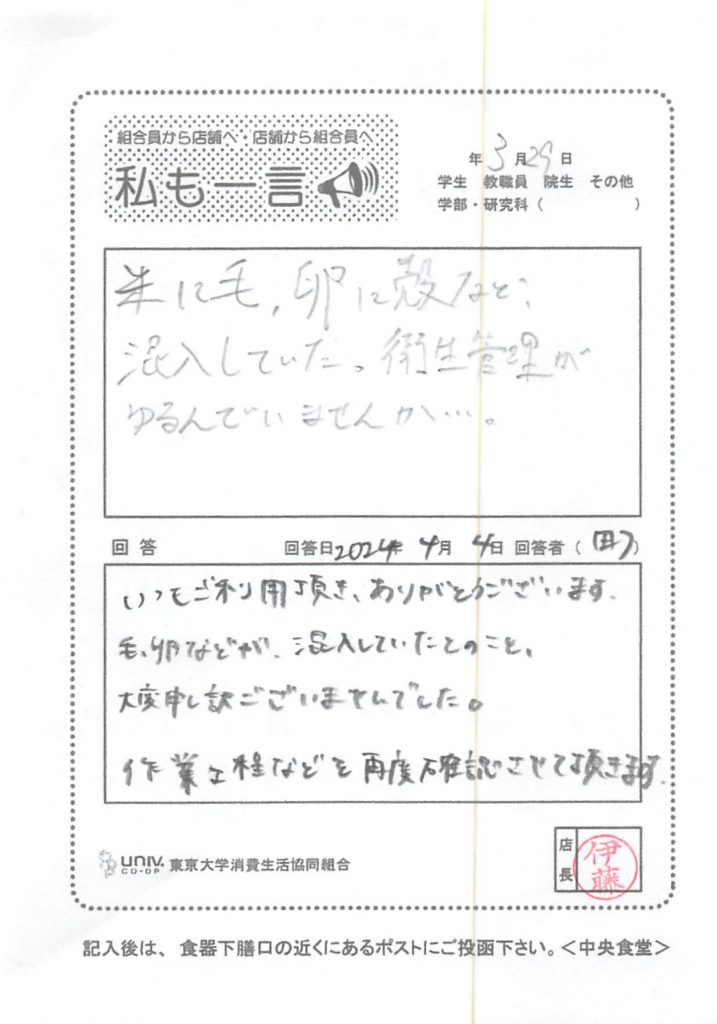 組合員から店舗へ・店舗から組合員へ
私も一言
年 3月29日
学生 教職員 院生 その他
学部・研究科( )
米に毛,卵に殻など、
混入していた。衛生管理が
ゆるんでいませんか…。
回答 回答日2024年 4月 4日 回答者( )
いつもご利用頂き、ありがとうございます。
毛、卵などが、混入していたとのこと、
大変申し訳ございませんでした。
作業工程などを再度確認させて頂きます。
UNIV. CO-OP 東京大学消費生活協同組合
店長 伊藤
記入後は、食器下膳口の近くにあるポストにご投函下さい。<中央食堂>